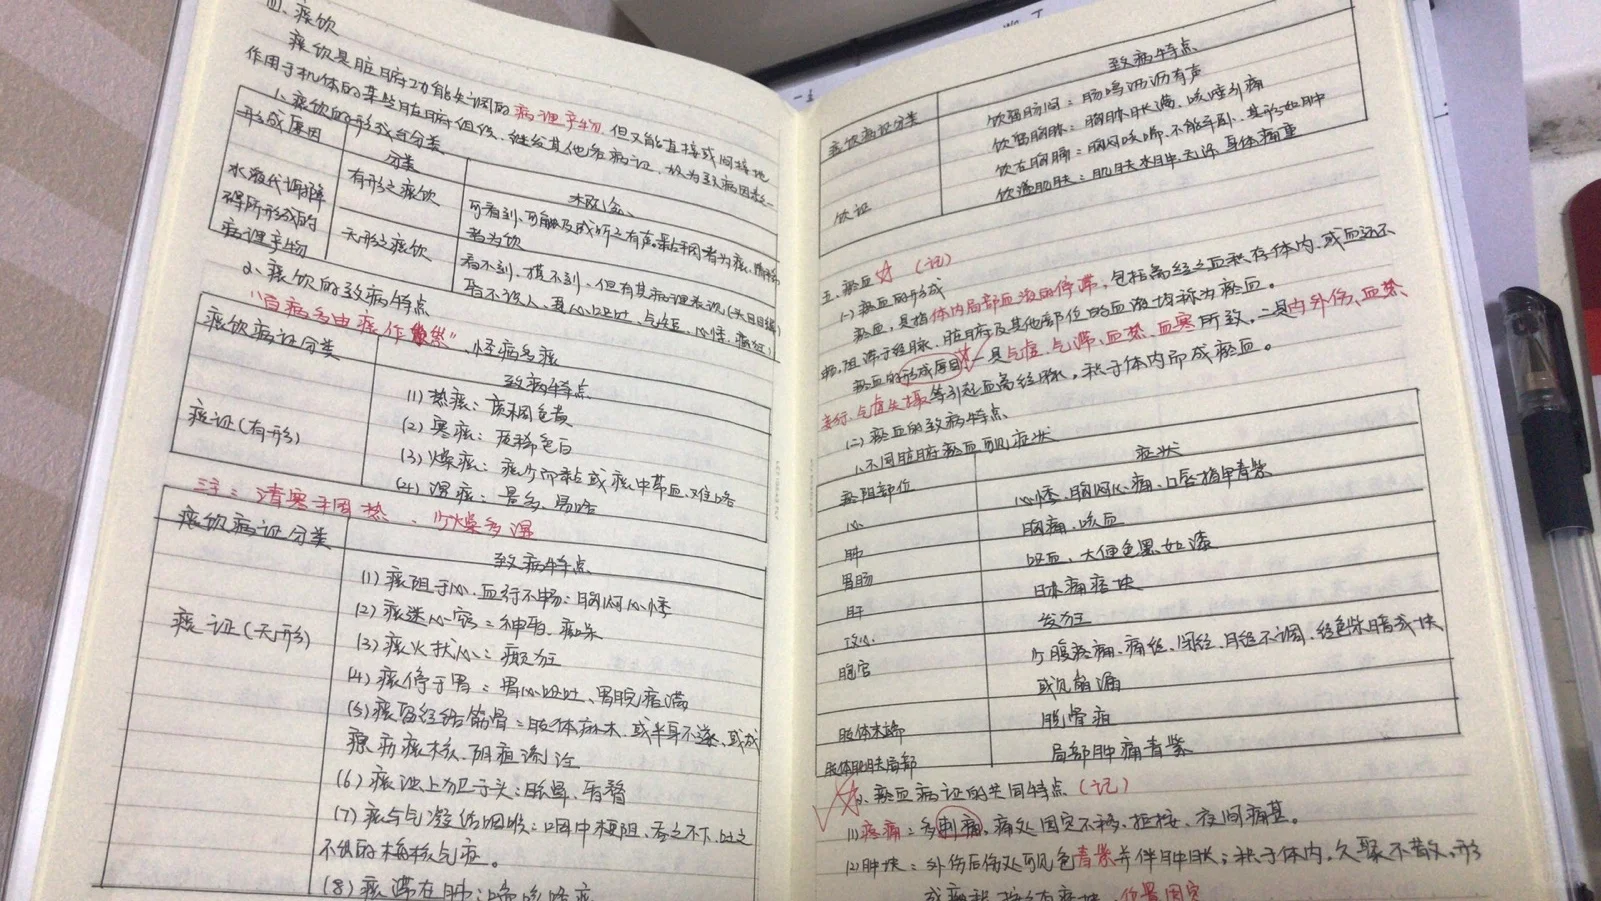 四、痰饮
痰饮是脏腑功能失调的病理产物,但又能直接或间接地
作用于机体的某些脏腑组织,继发其他各病证,故为致病因素之一
1、痰饮的形成与分类
形成原因 分类 概念
水液代谢障碍所形成的病理产物
有形之痰饮 可看到、可触及或听之有声。黏稠者为痰、清稀
者为饮
无形之痰饮 看不到、摸不到、但有其病理表现(头目目眩
呕恶、气短、心悸、癫狂)
2、痰饮的致病特点
"百病多由痰作祟",怪病多痰
痰饮病证分类 致病特点
痰证(有形)
(1)热痰:痰稠色黄
(2)寒痰:痰稀色白
(3)燥痰:痰少而黏或痰中带血、难咯
(4)湿痰:量多、易咯
清寒稠热、少燥多湿
痰饮病证分类 致病特点
痰证(无形)
(1)痰阻于心、血行不畅:胸闷心悸
(2)痰迷心窍:神昏、痴呆
(3)痰火扰心:癫狂
(4)痰停于胃:恶心呕吐、胃脘痞满
(5)痰留经络筋骨:肢体麻木、或半身不遂、或成
瘰疬痰核、阴疽流注
(6)痰浊上犯于头:眩晕、昏瞀
(7)痰与气凝结咽喉:咽中梗阻、吞之不下、吐之
不出的梅核气症。
(8)痰滞在肺:喘咳咯痰
痰饮病证分类 致病特点
饮证
饮留肠间:肠鸣沥沥有声
饮留胸胁:胸胁胀满、咳唾引痛
饮在胸膈:胸闷咳喘、不能平卧、其形如肿
饮溢肌肤:肌肤水肿、无汗、身体痛重
五、瘀血(记)
(一)瘀血的形成
瘀血,是指体内局部血液的停滞,包括离经之血积存体内,或血运不
畅,阻滞于经脉、脏腑及其他部位的血液均称为瘀血。
瘀血的形成原因:一是气虚、气滞、血热、血寒所致,二是内外伤、血热
妄行、气虚失摄等引起血离经脉,积于体内而成瘀血。
(二)瘀血的致病特点
1、不同脏腑瘀血可见症状
瘀阻部位 症状
心 心悸、胸闷心痛、口唇指甲青紫
肺 胸痛、咳血
胃肠 呕血、大便色黑如漆
肝 胁痛痞块
攻心 发狂
胞宫 少腹疼痛、痛经、闭经、月经不调、经色紫暗成块
或见崩漏
肢体末端 脱骨疽
肢体肌肤局部 局部肿痛青紫
2、瘀血病证的共同特点(记)
(1)疼痛:多刺痛、痛处固定不移、拒按、夜间痛甚。
(2)肿块:外伤后伤处可见色青紫并伴肿胀;积于体内,久聚不散,形
位置固定